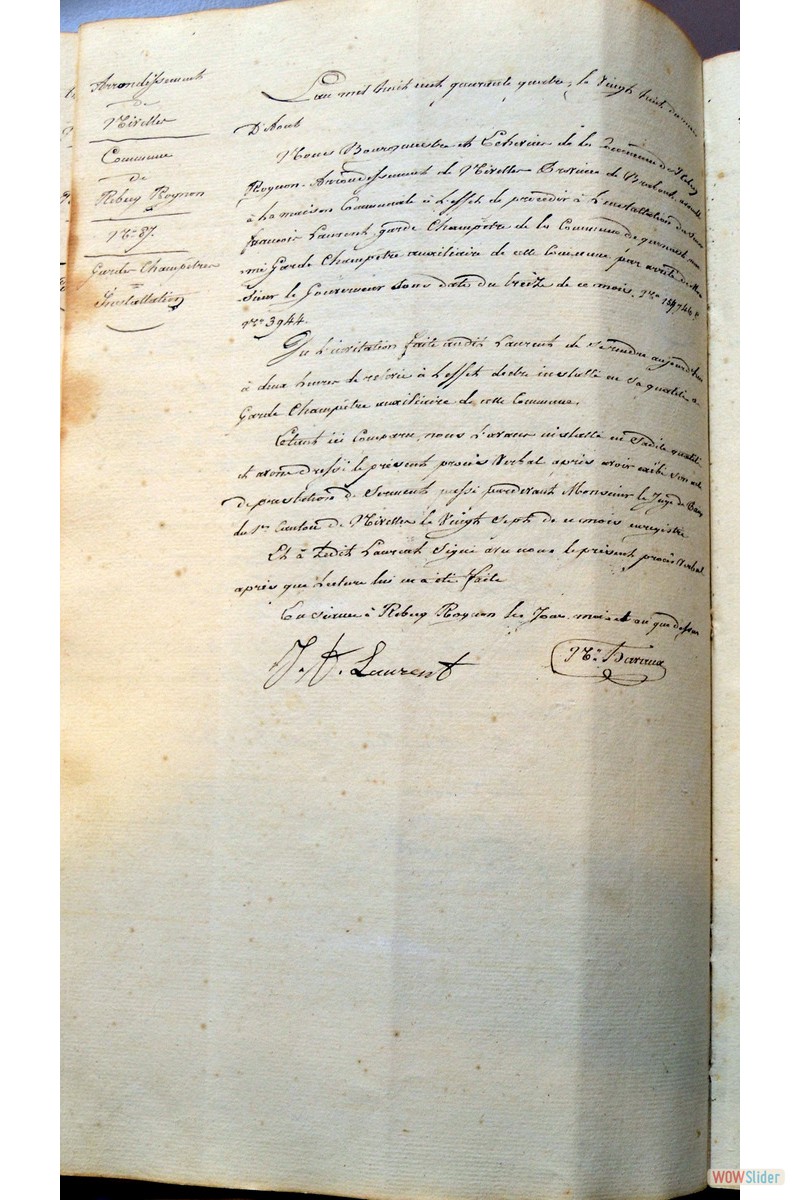 Arrondissement
de
Nivelles
Commune
de
Rebecq Rognon
N.o 87.
Gardes Champêtres
Installation
L'an mil huit cent quarante quatre, le vingt huit du mois
D'Août
Nous Bourgmestre et Echevins de la Commune de Rebecq
Rognon. Arrondissement de Nivelles Province de Brabant,
à la maison Communale à l'effet de procéder à l'installation du Sieur
francois Laurent, garde Champêtre de la Commune de
mé Garde Champêtre auxiliaire de cette Commune par arrêté de Mon
sieur le Gouverneur sous date du treize de ce mois, N.o
N.o 3944.
Vu l'invitation faite audit Laurent de se rendre aujourd'hui
à deux heures de relevée à l'effet d'être installé en sa qualité de
Garde Champêtre auxiliaire de cette Commune.
Etant ici Comparu, nous l'avons installé en sadite qualité
et avons dressé le présent procès Verbal après avoir exibé son acte
de prestation de Serment passé pardevant Monsieur le Juge de Paix
du 1er Canton de Nivelles le Vingt Sept de ce mois enregistré
Et à Ledit Laurent Signé avec nous le présent procès Verbal
après que Lecture lui en a été faite
En séance à Rebecq Rognon les Jour, mois et an que dessus
J. F. Laurent
N.s Baraux
WOWSlider